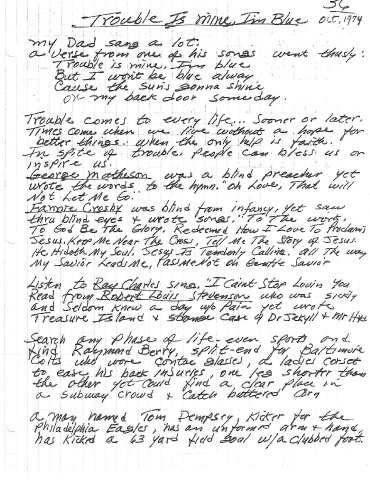 36
Trouble Is Mine, I'm Blue Oct. 1974
My Dad sang a lot.
A verse from one of his songs went thusly:
Trouble is mine. I'm blue
But I won't be blue alway
Cause the sun's gonna shine
on my back door some day.
Trouble comes to every life... Sooner or later.
Times come when we live without a hope for
better things. When the only help is faith.
In spite of trouble, people can bless us or
inspire us.
George Matheson was a blind preacher yet
wrote the words to the hymn "Oh Love, That Will
Not Let Me Go"
Fannie Crosby was blind from infancy, yet saw
thru blind eyes & wrote songs. "To The Work,
To God Be The Glory. Redeemed How I Love To Proclaim
Jesus, Keep Me Near The Cross, Tell Me The Story of Jesus
He Hideth My Soul, Jesus Is Tenderly Calling. All The Way
My Savior Leads Me, Pass Me Not Oh Gentle Savior
Listen to Ray Charles sing, "I Can't Stop Lovin You
Read from Robert Louis Stevenson who was sickly
and seldom knew a day w/o pain yet wrote
Treasure Island & Case of Dr Jekyll & Mr Hyde
Search any phase of life - even sports and
find Raymond Berry, split-end for Baltimore
Colts who wore contac glases, a ladies corset
to ease his back insuries, one leg shorter than
the other yet could find a clear place in
a subway crowd & catch buttered corn
A man named Tom Dempsey, Kicker for the
Philadelphia Eagles, has an unformed arm & hand,
has Kicked a 63 yard field goal w/a clubbed foot.